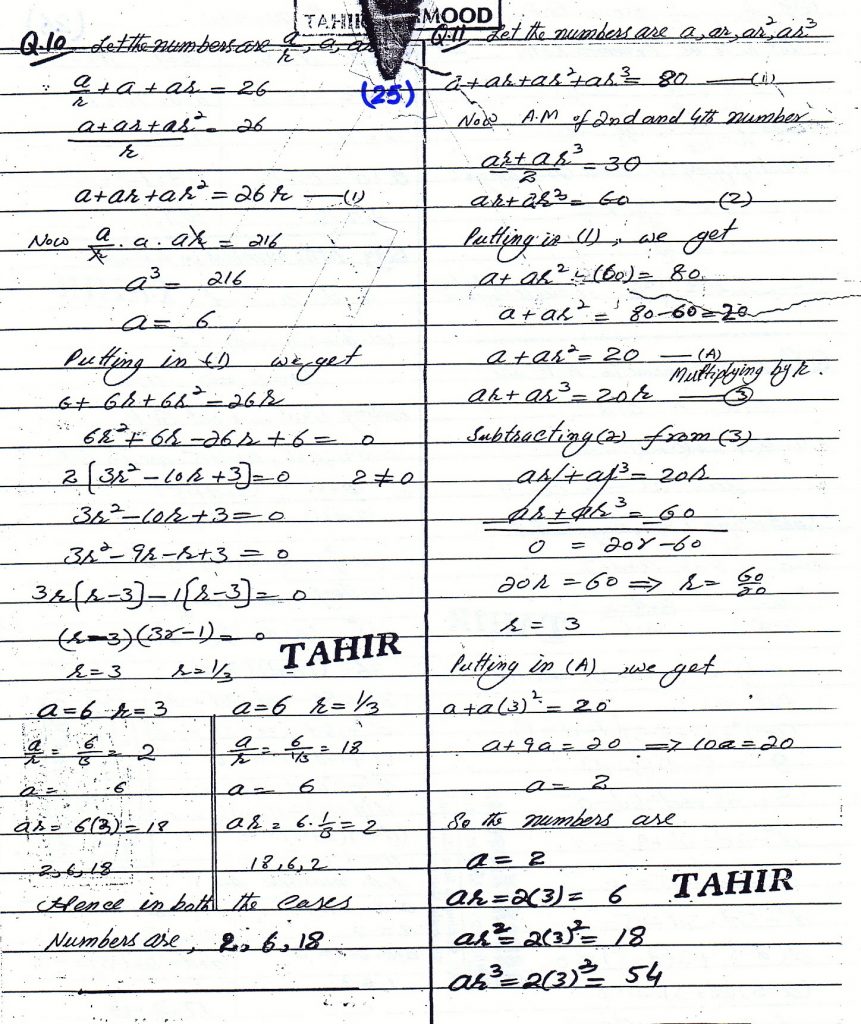 TAHIR MOOD
(25)
Q.10 Let the numbers are a/r, a, ar
∵ a/r + a + ar = 26
a+ar+ar²/r = 26
a+ar+ar² = 26r —(1)
Now a/r . a . ar = 216
a³ = 216
a = 6
Putting in (1) we get
6+6r+6r² = 26r
6r²+6r-26r+6 = 0
2[3r²-10r+3]=0 2≠0
3r²-10r+3=0
3r²-9r-r+3 = 0
3r[r-3]-1[r-3]=0
(r-3)(3r-1)=0
TAHIR
r=3 r=1/3
a=6 r=3
a/r = 6/3 = 2
a = 6
ar = 6(3) = 18
2,6,18
a=6 r=1/3
a/r = 6/1/3 = 18
a = 6
ar = 6.1/3 = 2
18,6,2
Hence in both the cases
Numbers are, 2, 6, 18
Q.11 Let the numbers are a, ar, ar², ar³
a+ar+ar²+ar³ = 80 —(1)
Now A.M of 2nd and 4th number
ar+ar³/2 = 30
ar+ar³ = 60 —(2)
Putting in (1), we get
a+ar²+(60) = 80
a+ar² = 80-60=20
a+ar² = 20 —(A)
Multiplying by r.
ar+ar³ = 20r —(3)
Subtracting (2) from (3)
ar+ar³ = 20r
ar+ar³ = 60
0 = 20r-60
20r = 60 ⇒ r = 60/20
r = 3
Putting in (A), we get
a+a(3)² = 20
a+9a = 20 ⇒ 10a=20
a = 2
So the numbers are
a = 2
ar=2(3) = 6
TAHIR
ar² = 2(3)² = 18
ar³ = 2(3)³ = 54